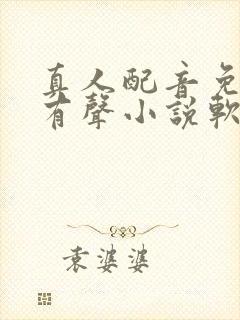 真人配音免
有聲小說軟
袁婆婆